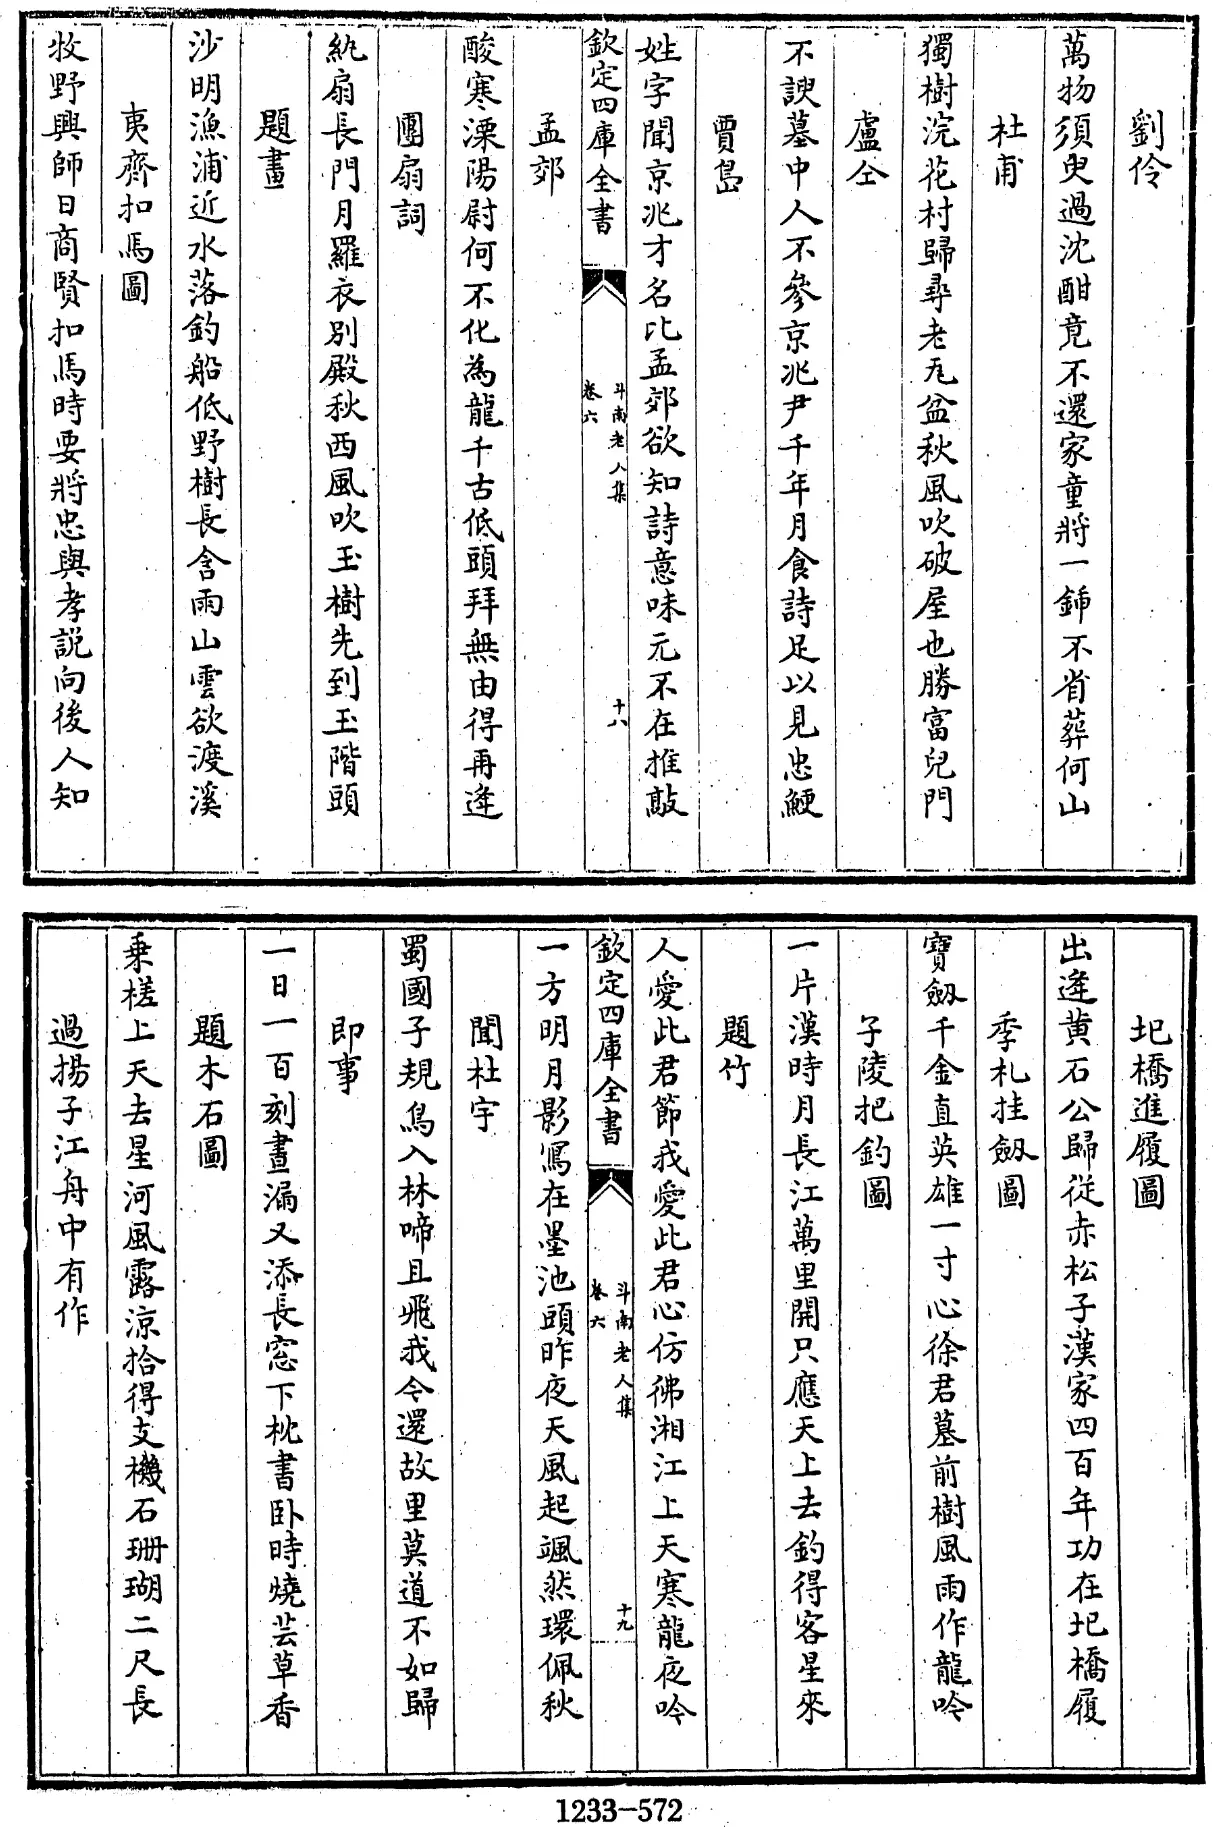 劉伶
萬物須臾過沈酣竟不還家童將一鍤不省葬何山
杜甫
獨樹浣花村歸尋老瓦盆秋風吹破屋也勝富兒門
盧仝
不諛墓中人不參京兆尹千年月食詩足以見忠鯁
賈島
姓字聞京兆才名比孟郊欲知詩意味元不在推敲
欽定四庫全書
斗南老人集
卷六
十八
孟郊
酸寒溧陽尉何不化為龍千古低頭拜無由得再逢
團扇詞
紈扇長門月羅衣別殿秋西風吹玉樹先到玉階頭
題畫
沙明漁浦近水落釣船低野樹長含雨山雲欲渡溪
夷齊扣馬圖
牧野興師日商賢扣馬時要將忠與孝説向後人知
圯橋進履圖
出逢黄石公歸從赤松子漢家四百年功在圯橋履
季札挂劒圖
寶劒千金直英雄一寸心徐君墓前樹風雨作龍吟
子陵把釣圖
一片漢時月長江萬里開只應天上去釣得客星來
題竹
人愛此君節我愛此君心仿彿湘江上天寒龍夜吟
欽定四庫全書
斗南老人集
卷六
十九
一方明月影寫在墨池頭昨夜天風起颯然環佩秋
聞杜宇
蜀國子規鳥入林啼且飛我今還故里莫道不如歸
即事
一日一百刻晝漏又添長窓下枕書卧時燒芸草香
題木石圖
乗槎上天去星河風露涼拾得支機石珊瑚二尺長
過揚子江舟中有作
1233-572